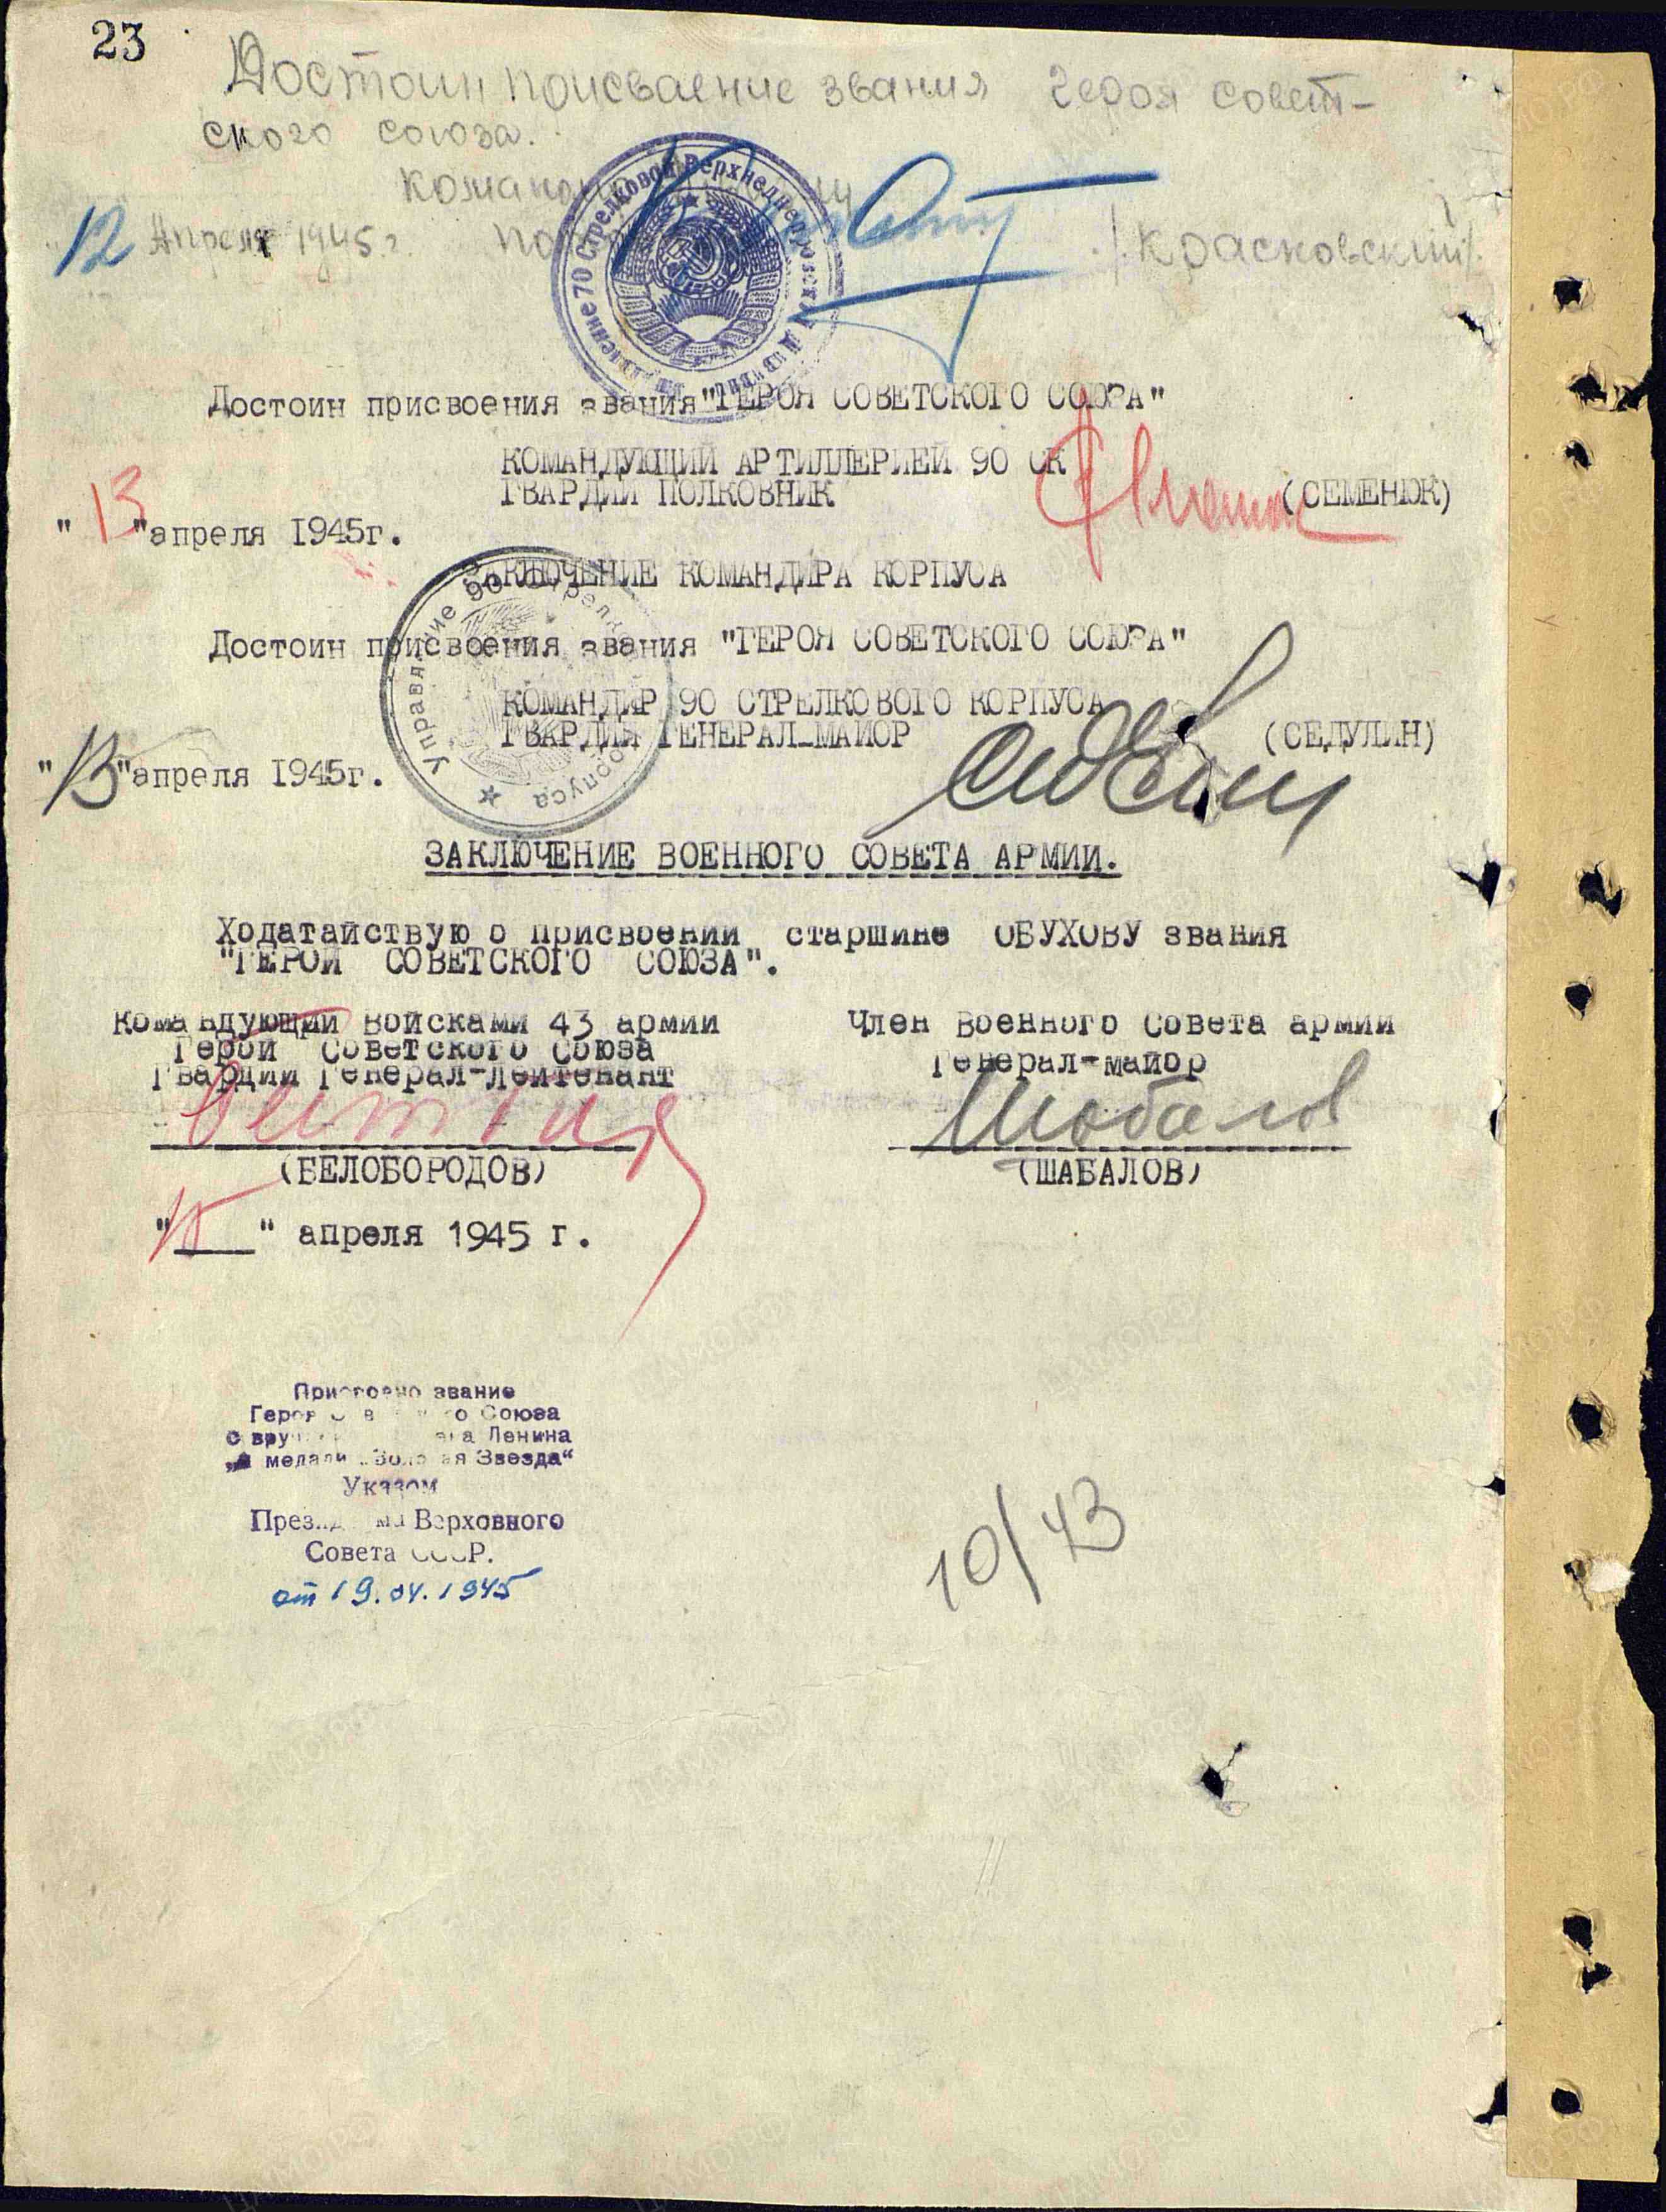 23
Достоин присваение звания Героя совет-
ского союза.
12 Апреля 1945 г.
/Красковский/.
Управление 70 Стрелковой Верхнеднепровской Дивизии
Достоин присвоения звания "ГЕРОЯ СОВЕТСКОГО СОЮЗА"
КОМАНДУЮЩИЙ АРТИЛЛЕРИЕЙ 90 СК
ГВАРДИИ ПОЛКОВНИК (СЕМЕНЮК)
"13"апреля 1945г.
ЗАКЛЮЧЕНИЕ КОМАНДИРА КОРПУСА
Достоин присвоения звания "ГЕРОЯ СОВЕТСКОГО СОЮЗА"
КОМАНДИР 90 СТРЕЛКОВОГО КОРПУСА
ГВАРДИИ ГЕНЕРАЛ-МАЙОР (СЕДУЛИН)
"13"апреля 1945г.
Управление 90 Стрелк корпуса
ЗАКЛЮЧЕНИЕ ВОЕННОГО СОВЕТА АРМИИ.
Ходатайствую о присвоении старшине ОБУХОВУ звания
"ГЕРОЙ СОВЕТСКОГО СОЮЗА".
Командующий войсками 43 армии
Герой Советского Союза
Гвардии Генерал-Лейтенант
(БЕЛОБОРОДОВ)
" " апреля 1945 г.
Член Военного Совета армии
Генерал-майор
Шабалов
(ШАБАЛОВ)
Присвоено звание
Героя Советского Союза
с вру Ленина
и медали „Золотая Звезда“
Указом
Президиума Верховного
Совета СССР.
от 19.04.1945
10/43
ЦАМО.РФ